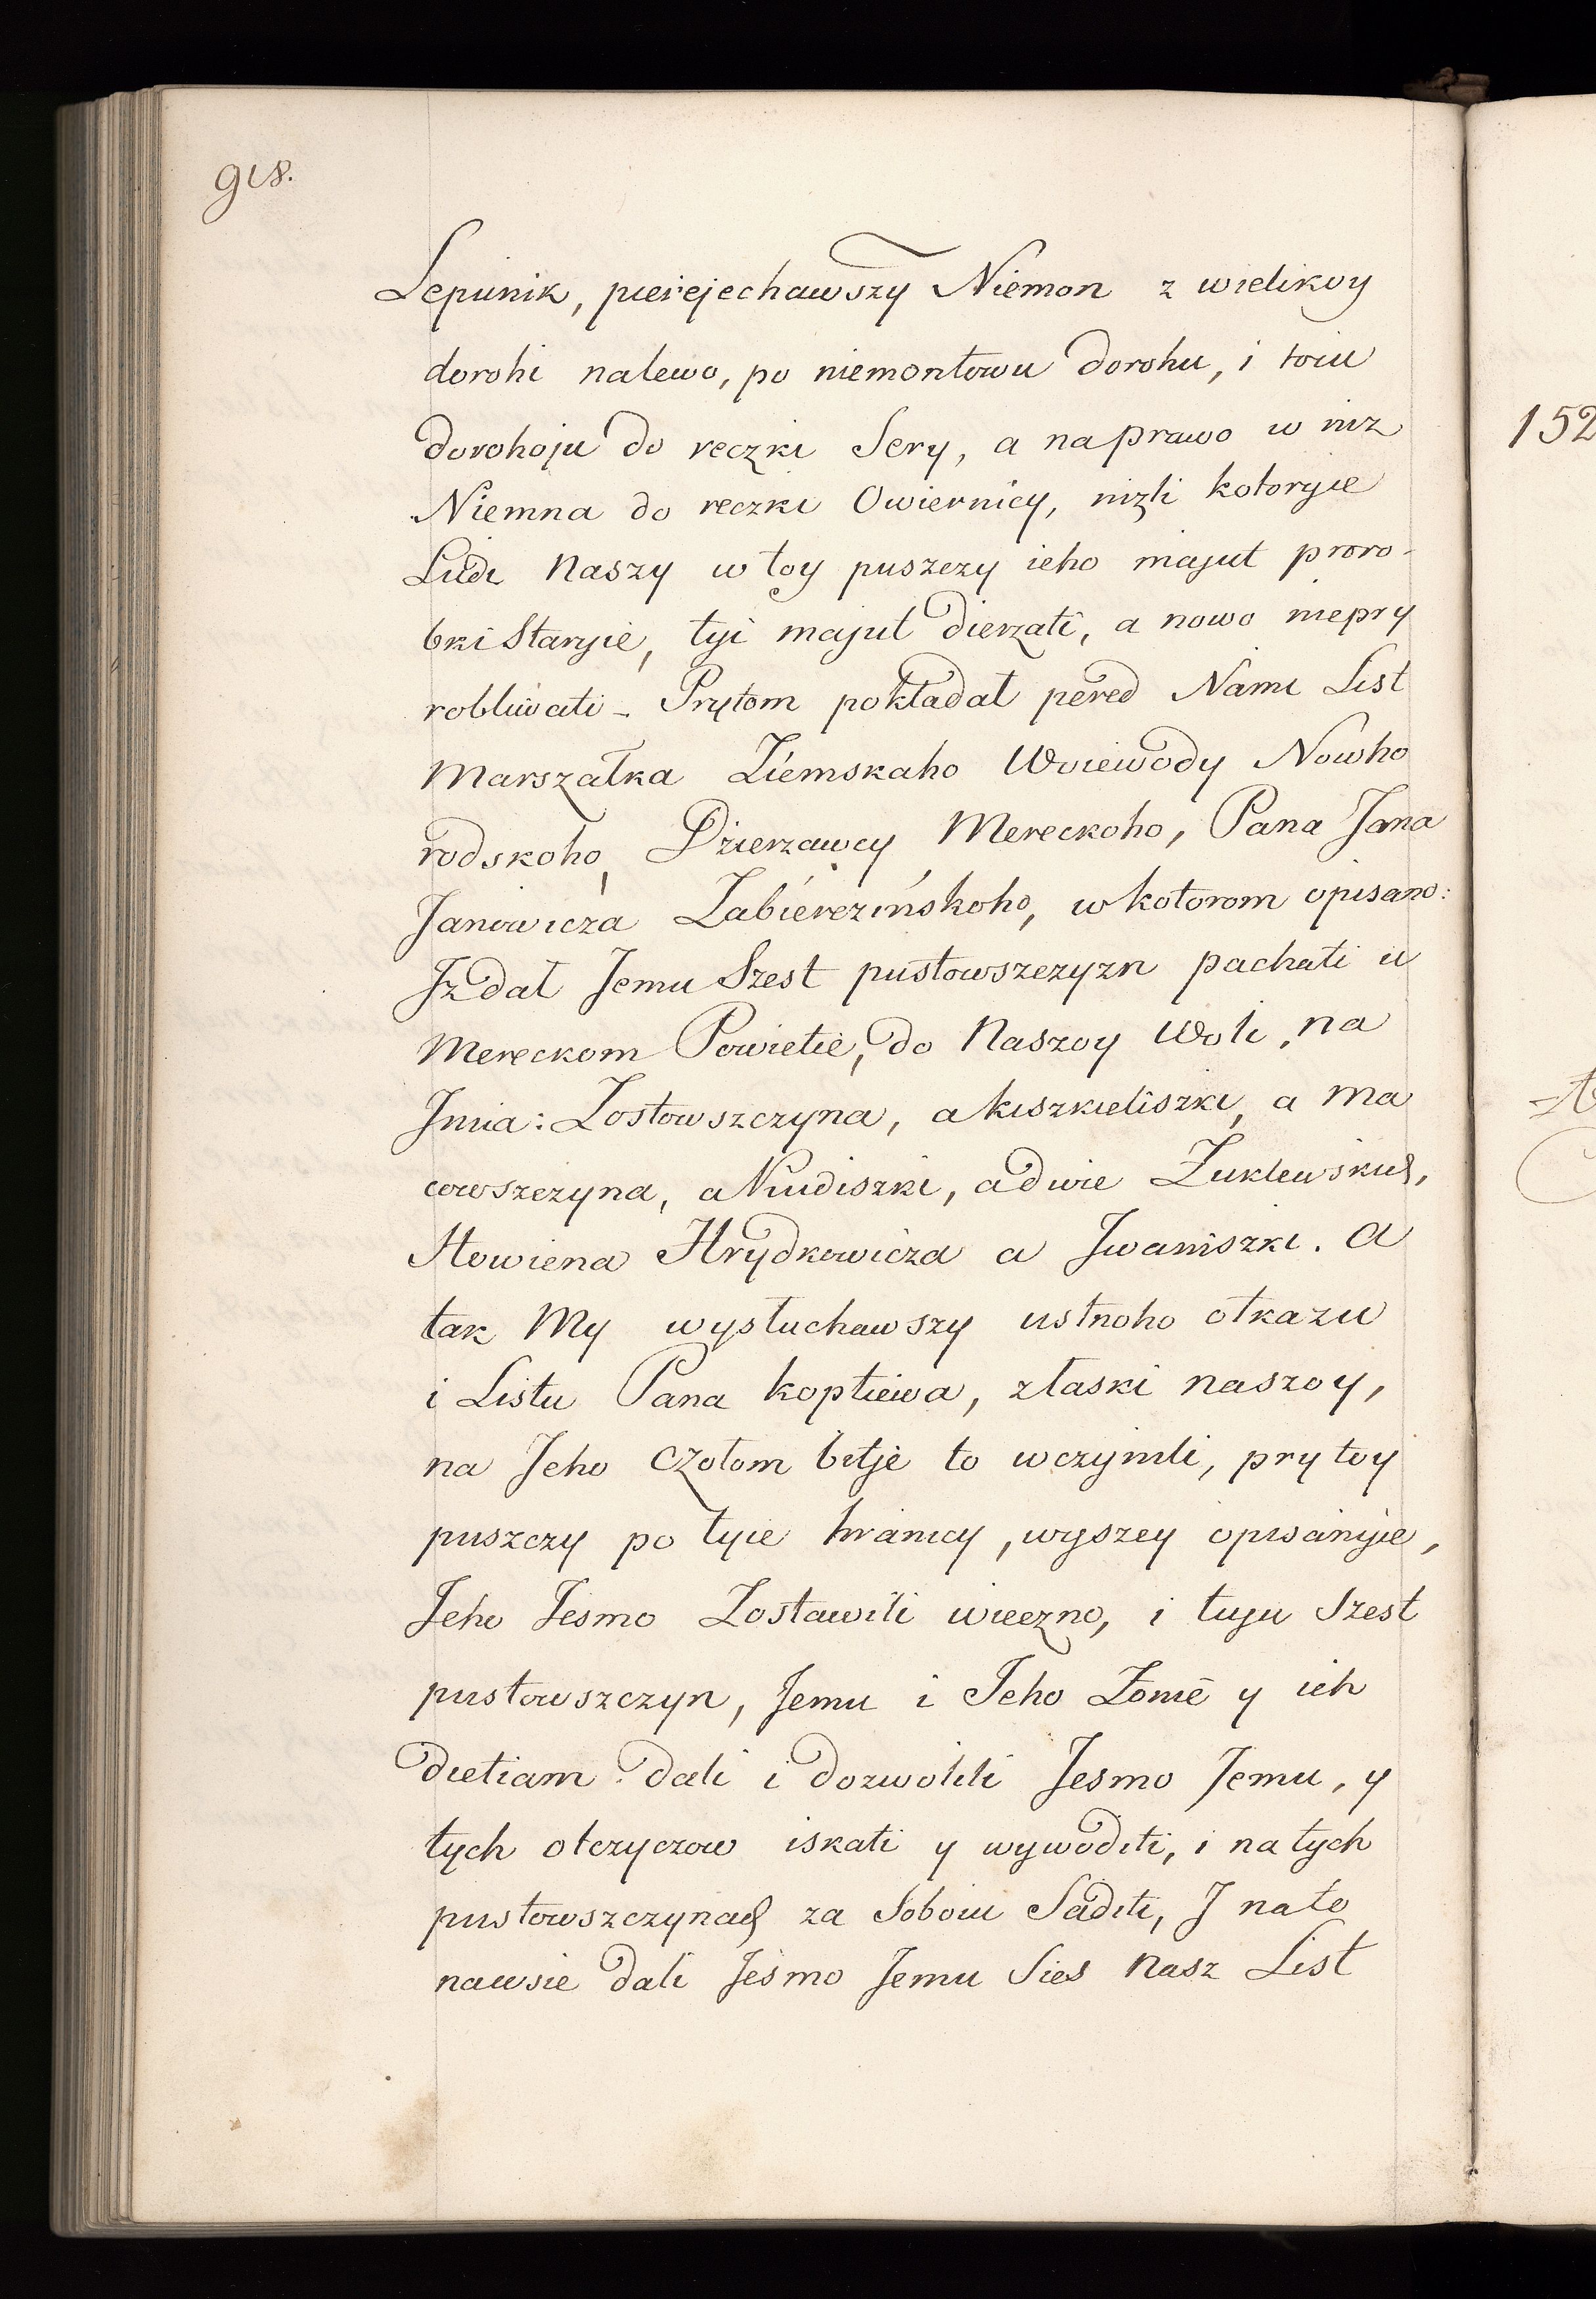 918.
Lepunik, pierejechawszy Niemon z wielikoy
dorohi nalewo, po niemontowu dorohu, i toiu
dorohoju do reczki Sery, a naprawo w niz
Niemna do reczki Owiernicy, nizli kotoryie
Ludi Naszy w toy puszczy ieho majut proro-
bki Staryie, tyi majut dierzati, a nowo niepry
robliwati - Prytom pokładał pered Nami List
Marszałka Ziemskaho Woiewody Nowho
rodskoho, Dzierzawcy Mereckoho, Pana Jana
Janowicza Zabierezińskoho, w kotorom opisano:
Jz dał Jemu Szest pustowszczyzn pachati u
Mereckom Powietie, do Naszoy Woli, na
Jmia: Zostowszczyna, a kiszkieliszki, a Ma
cowszczyna, a Niudiszki, a dwie Zuklewskich,
Howiena Hrydkowicza a Jwaniszki. A
tak My wysłuchawszy ustnoho otkazu
i Listu Pana koptiewa, z łaski naszoy,
na Jeho czołom bitje to wczynili, pry toy
puszczy po tyie hranicy, wyszey opisanyie,
Jeho Jesmo Zostawili wieczno, i tuju Szest
pustowszczyn, Jemu i Jeho Zonie y ich
dietiam dali i dozwolili Jesmo Jemu, y
tych otczyczow iskati y wywoditi, i na tych
pustowszczynach za Soboiu Saditi, J na to
nawsie dali Jesmo Jemu Sies Nasz List
152